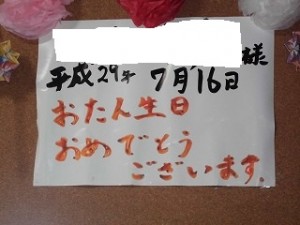 様
平成29年 7月16日
おた人生日
おめでとう
ございます。